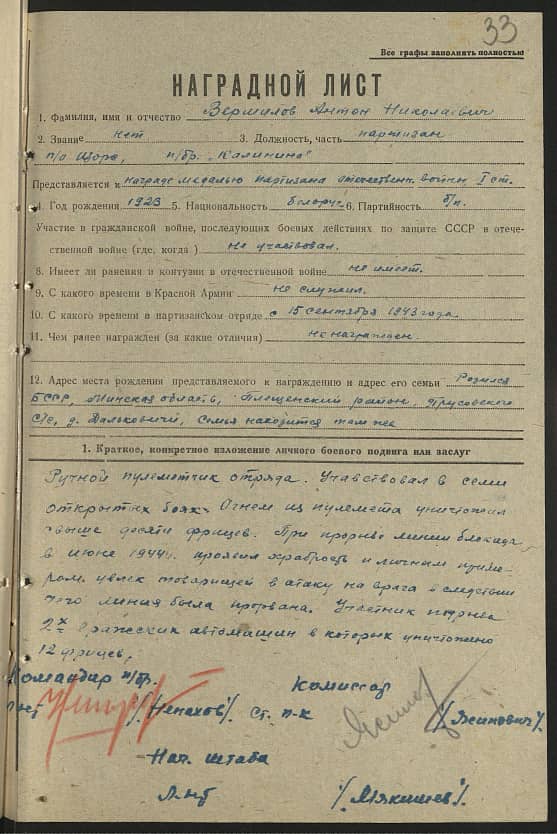 33
Все графы заполнять полностью
НАГРАДНОЙ ЛИСТ
1. Фамилия, имя и отчество Вермилов Антон Николаевич
2. Звание нет 3. Должность, часть партизан
п/о Щорса, п/бр. „Калинина"
Представляется к награде медалью партизана отечественн. войны I ст.
4. Год рождения 1923 5. Национальность белорус 6. Партийность б/п.
Участие в гражданской войне, последующих боевых действиях по защите СССР в отече-
ственной войне (где, когда) не участвовал.
8. Имеет ли ранения и контузии в отечественной войне не имеет.
9. С какого времени в Красной Армии не служил.
10. С какого времени в партизанском отряде с 15 сентября 1943 года
11. Чем ранее награжден (за какие отличия) не награжден.
12. Адрес места рождения представляемого к награждению и адрес его семьи Родился
БССР, Минская область, Плещенский район, Прусовского
С/С, д. Дальковичи, Семья находится там же
1. Краткое, конкретное изложение личного боевого подвига или заслуг
Ручной пулеметчик отряда. Учавствовал в семи
открытых боях. Огнем из пулемета уничтожил
свыше десяти фрицев. При прорыве линии блокады
в июне 1944 г. проявил храбрость и личным приме-
ром увлек товарищей в атаку на врага в следствии
чего линия была прорвана. Участник подрыва
2х вражеских автомашин в которых уничтожено
12 фрицев.
Командир п/бр. Комиссар
/Ненахов/. Ст. п-к /Ясинович/.
Нач. штаба
Л-нт /Мякишев/.